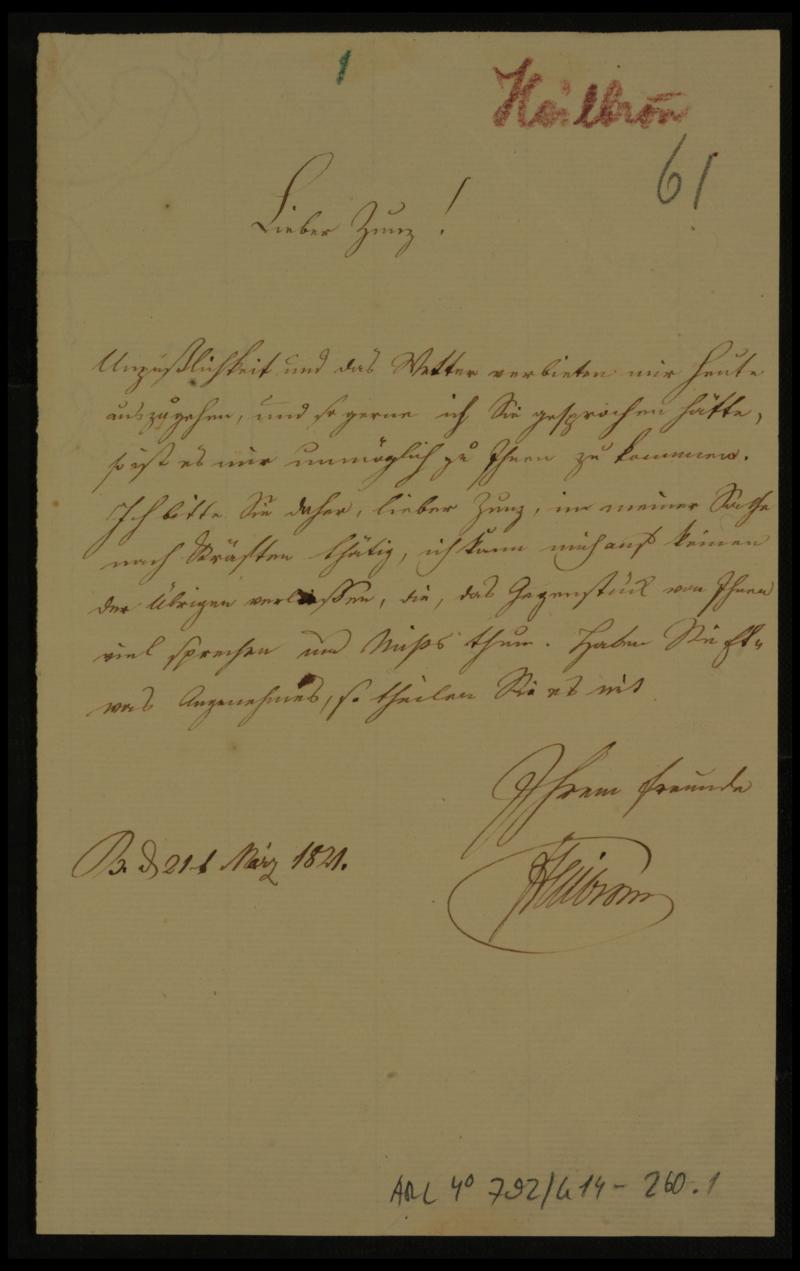 1
Heilbron
61
Lieber Zunz!
Unpäßlichkeit und das Wetter verbieten mir heute
auszugehen, und so gerne ich Sie gesprochen hätte,
so ist es mir unmöglich zu Ihnen zu kommen.
Ich bitte Sie daher, lieber Zunz, in meiner Sache
nach Kräften thätig, ich kann mich auf keinen
der Übrigen verlassen, die, das Gegenstück von Ihnen
viel sprechen und Nichts thun. Haben Sie Et-
was Angenehmes, so theilen Sie es mit
Ihrem Freunde
B. d 21t März 1821.
Heilbronn
ARC 4° 792/G14-260.1